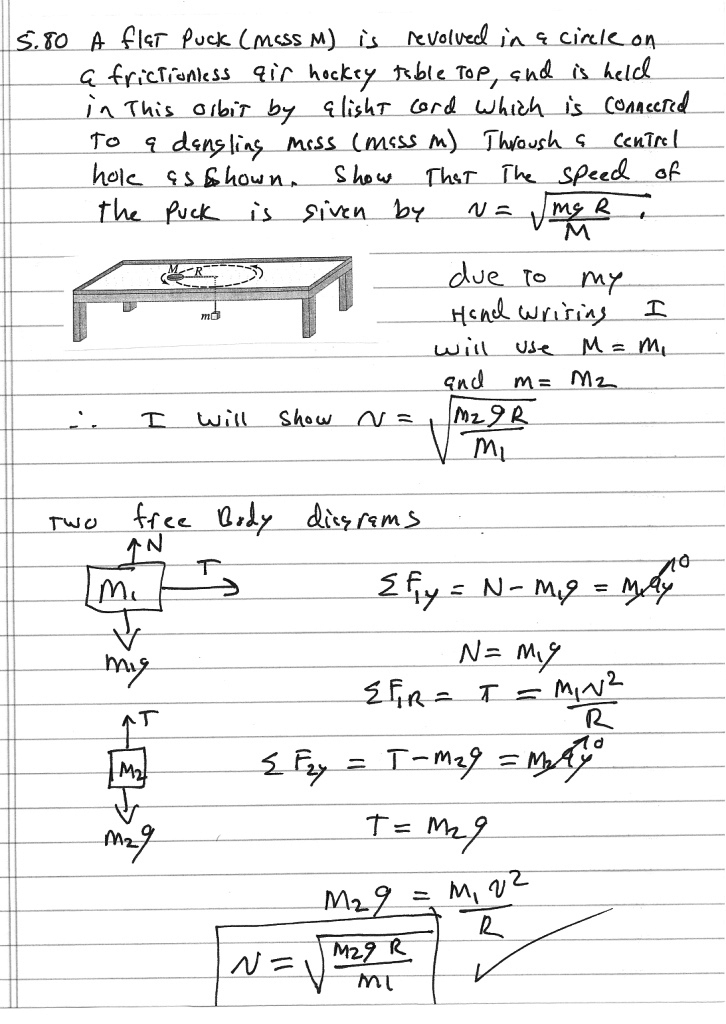 5.80 A flat Puck (mass M) is revolved in a circle on
a frictionless air hockey table top, and is held
in this orbit by a light cord which is connected
to a dangling mass (mass m) Through a central
hole as shown. Show That The speed of
the puck is given by v = √(mgR/M).
M R
m
due to my
Handwriting I
will use M = m₁
and m = m₂
∴ I will show v = √(m₂gR/m₁)
Two free Body diagrams
N
m₁ T
m₁g
ΣF₁y = N - m₁g = m₁ay 0
N = m₁g
ΣF₁R = T = m₁v²/R
T
m₂
m₂g
ΣF₂y = T - m₂g = m₂ay 0
T = m₂g
m₂g = m₁v²/R
v = √(m₂gR/m₁)